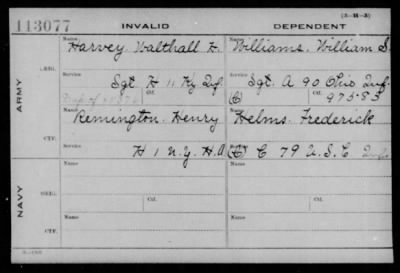 (3-M-3)
113077 INVALID DEPENDENT
Name Name
Harvey. Walthall H. Williams. William S.
ORIG.
Service Service
Sgt. H 11 Ky Inf. Sgt. A 90 Ohio Inf.
Ctf. Ctf.
(C) 975.83
ARMY
Name Name
Remington. Henry Helms. Frederick
CTF.
Service Service
H 1 N.Y. H.A. (C) C 79 U.S.C Inf.
Name Ctf. Name Ctf.
ORIG.
NAVY
Name Name
CTF.